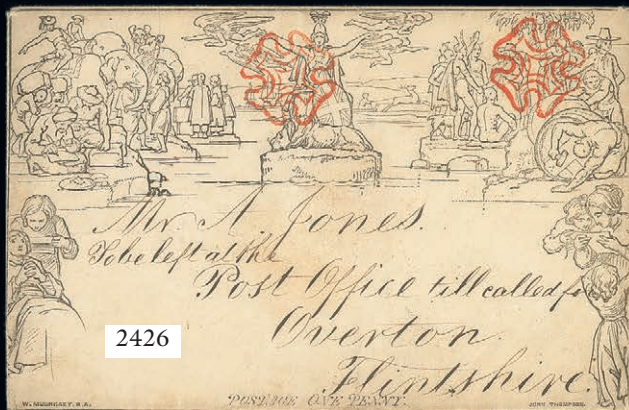 Mr. A. Jones.
To be left at the
Post Office till called for
Overton.
Flintshire.
2426
W. MULREADY, R.A.
POSTAGE ONE PENNY.
JOHN THOMPSON.